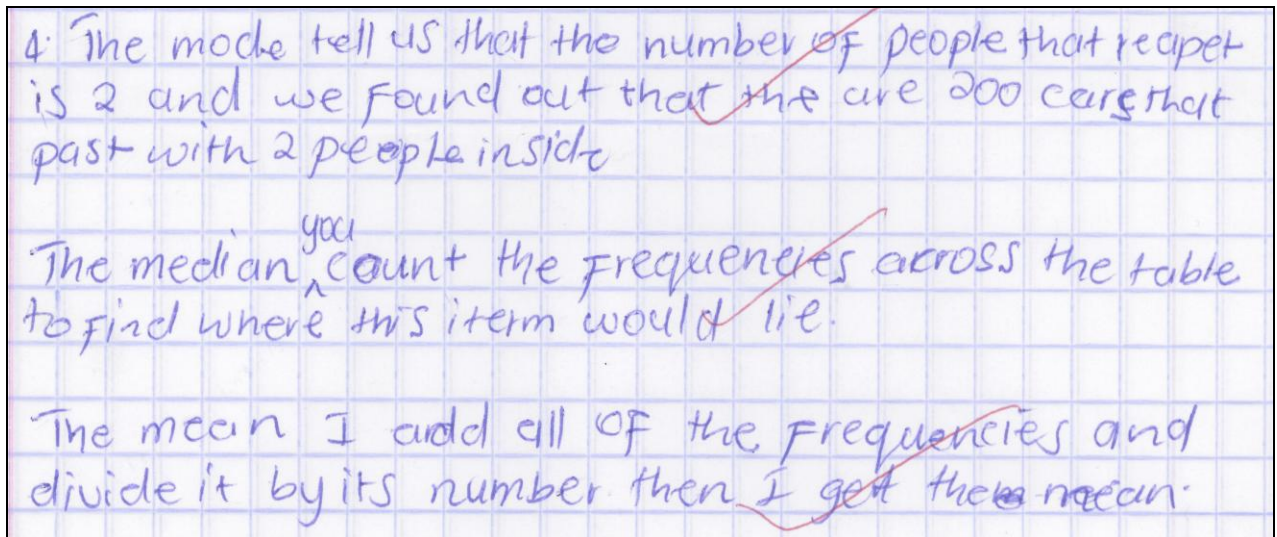 4. The mode tell us that the number of people that reapet
is 2 and we found out that the are 200 cars that
past with 2 people inside
you
The median ^ count the frequencies across the table
to find where this iterm would lie.
The mean I add all of the frequencies and
divide it by its number then I get the mean.